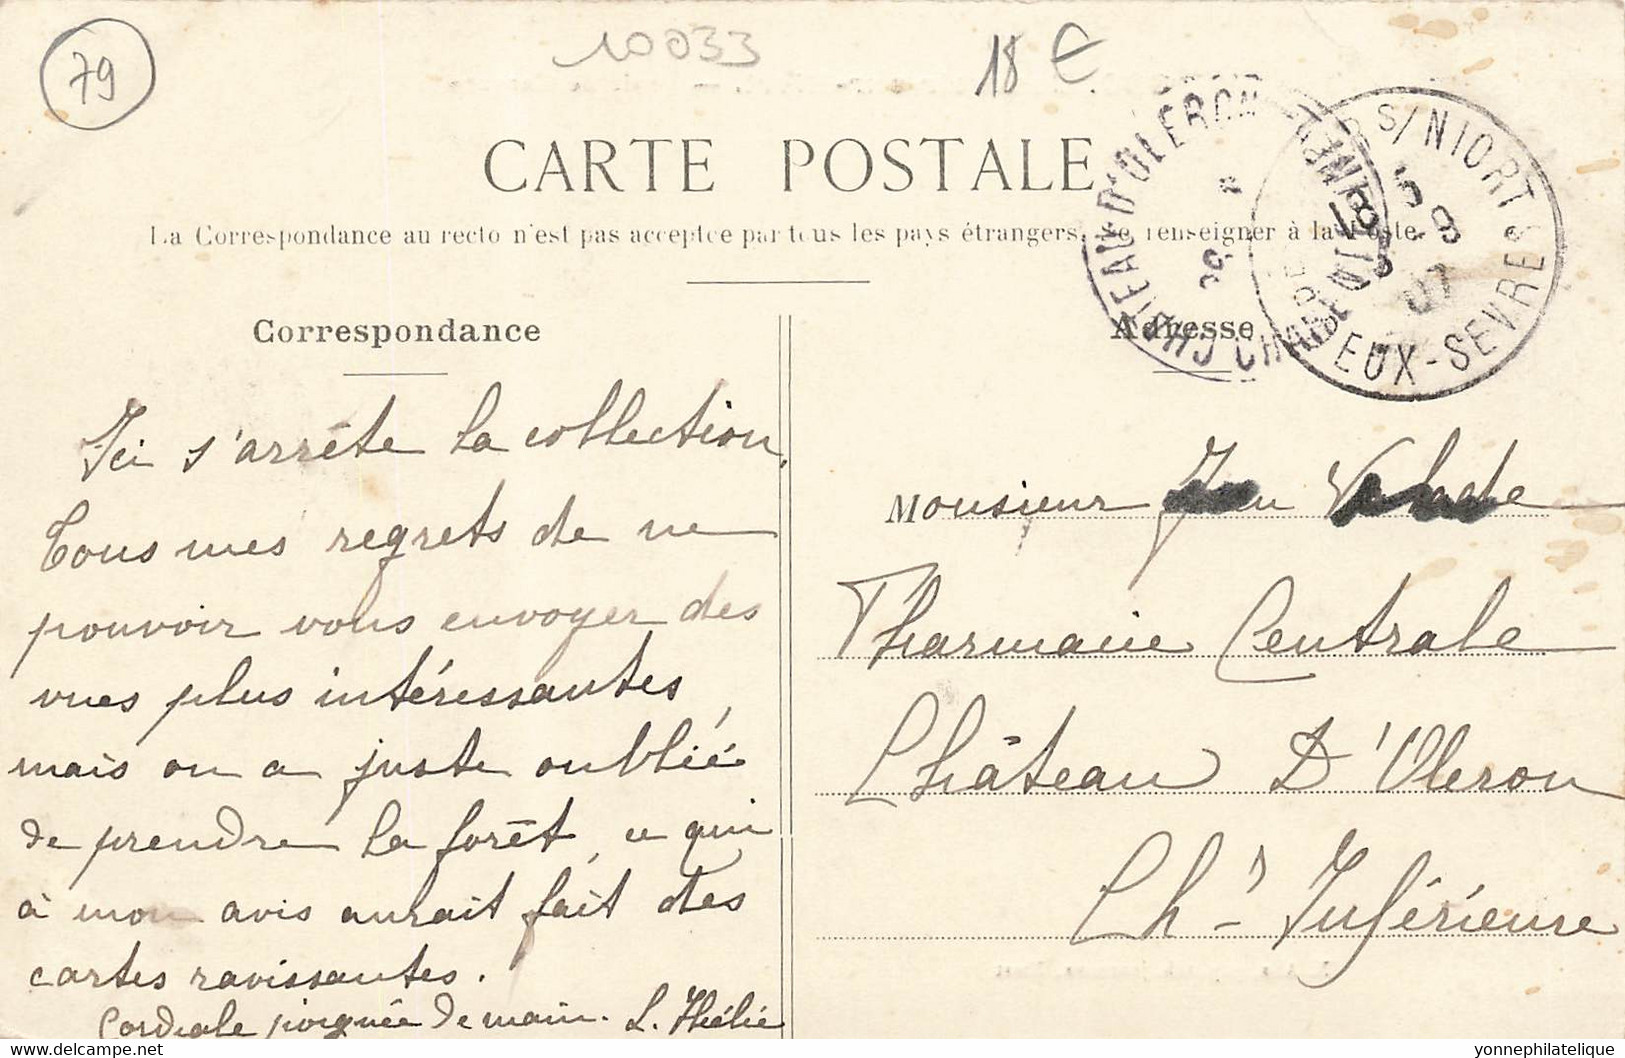 79
10033
18 €
CARTE POSTALE
La Correspondance au recto n'est pas acceptée par tous les pays étrangers. Se renseigner à la Poste.
CHATEAU D'OLERON
CHARENTE INFRE
S/NIORT
DEUX-SEVRES
Correspondance
Adresse
Ici s'arrête la collection,
Tous mes regrets de ne
pouvoir vous envoyer des
vues plus intéressantes,
mais on a juste oublié
de prendre la forêt, ce qui
à mon avis aurait fait des
cartes ravissantes.
Cordiale poignée de main. L. Hélie
Monsieur
Pharmacie Centrale
Château D'Oleron
Ch. Inférieure
yonnephilatelique